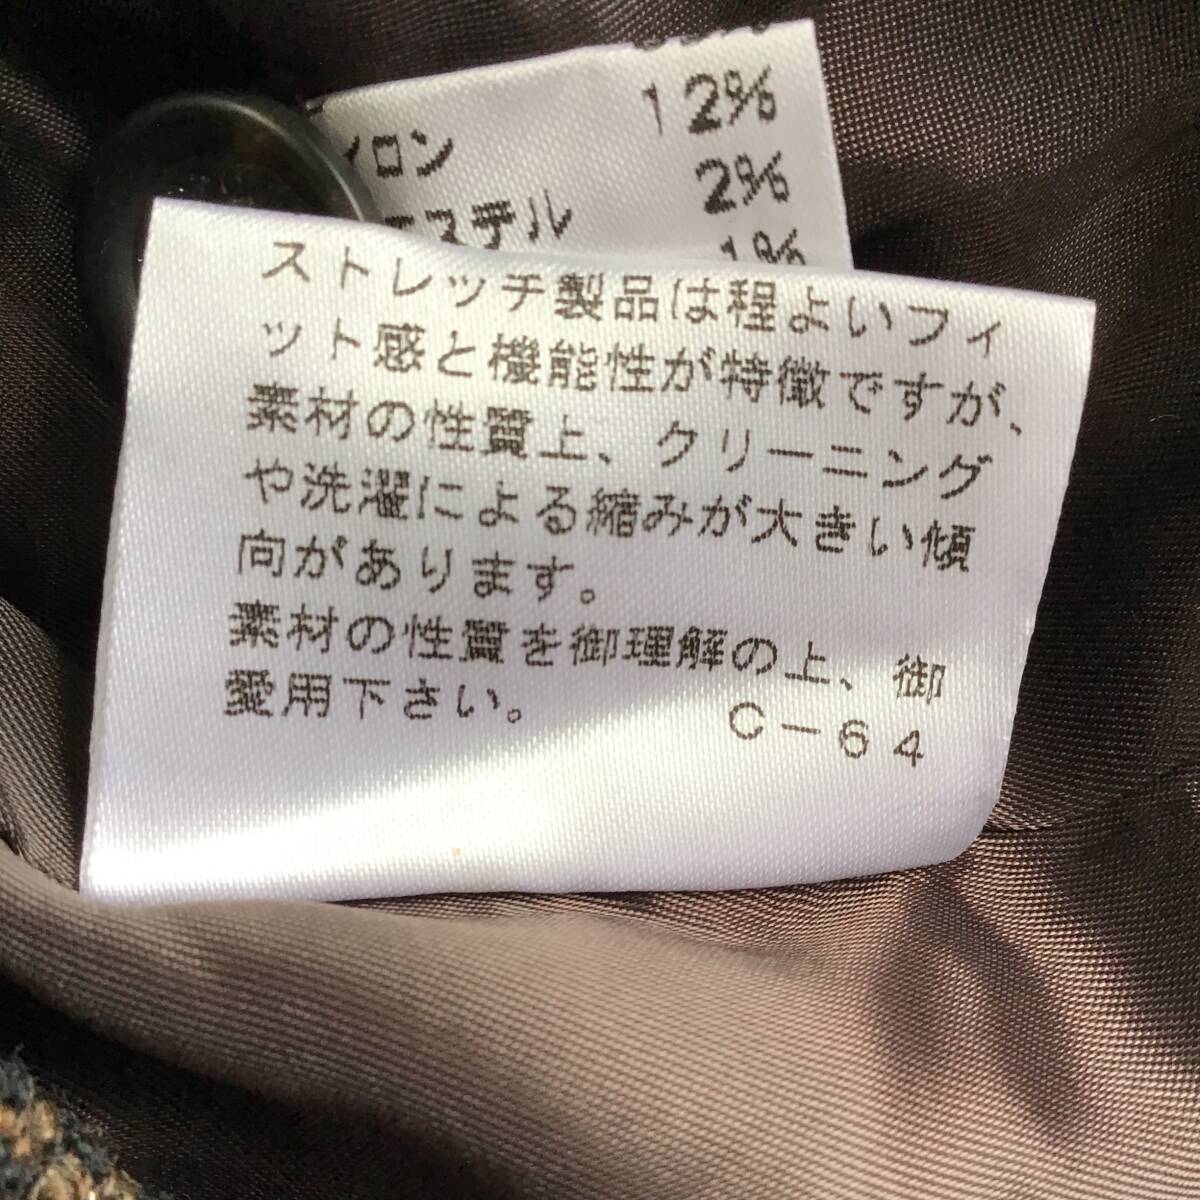 イロン 12%
エステル 2%
1%
ストレッチ製品は程よいフィ
ット感と機能性が特徴ですが、
素材の性質上、クリーニング
や洗濯による縮みが大きい傾
向があります。
素材の性質を御理解の上、御
愛用下さい。 C－64